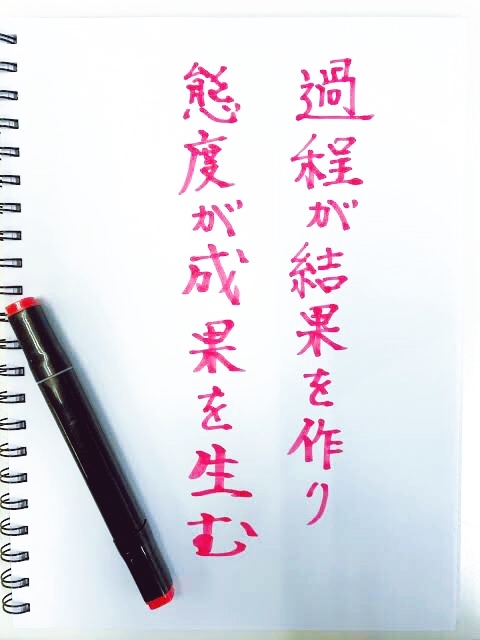 過程が結果を作り
態度が成果を生む